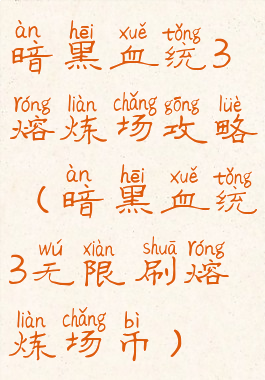 àn hēi xuě tǒng
暗黑血统3
róng liàn chǎng gōng lüè
熔炼场攻略
àn hēi xuě tǒng
（暗黑血统
wú xiàn shuā róng
3无限刷熔
liàn chǎng bì
炼场币）